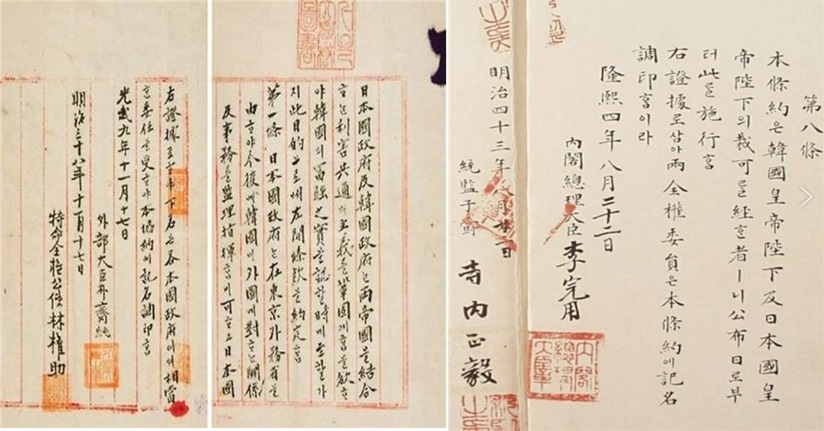 第八條
本條約은韓國皇帝陛下及日本國皇
帝陛下의裁可를經ᄒᆞᆫ者ㅣ니公布日로부
터此를施行홈
右證據로삼아兩全權委員은本條約에記名
調印홈이라
隆熙四年八月二十二日
內閣總理大臣李完用
內閣總理大臣章
明治四十三年八月廿二日
統監子爵 寺内正毅
日本國政府及韓國政府는兩帝國을結合
ᄒᆞ는利害共通의主義를鞏固케홈을欲ᄒᆞ
야韓國의富強之實을認ᄒᆞᆯ時에至ᄒᆞᆯ기가
지此目的으로써左開條款을約定홈
第一條 日本國政府는在東京外務省을
由ᄒᆞ야今後에韓國이外國에對ᄒᆞ는關係
及事務를監理指揮홈이可ᄒᆞ고日本國
右證據로ᄒᆞ야下名은各本國政府에셔相當
ᄒᆞᆫ委任을受ᄒᆞ야本協約에記名調印홈
光武九年十一月十七日
外部大臣朴齊純
明治三十八年十一月十七日
特命全權公使林權助